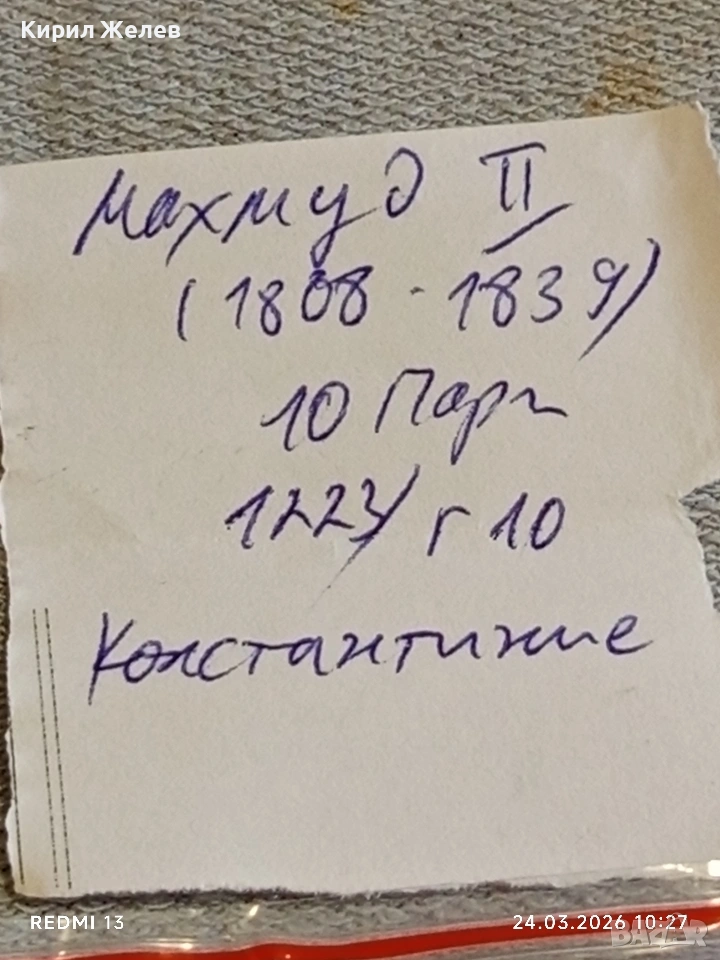 Кирил Желев
Махмуд II
(1808 - 1839)
10 Пари
1223/ г 10
Константиние
REDMI 13
24.03.2026 10:27
BAZAR